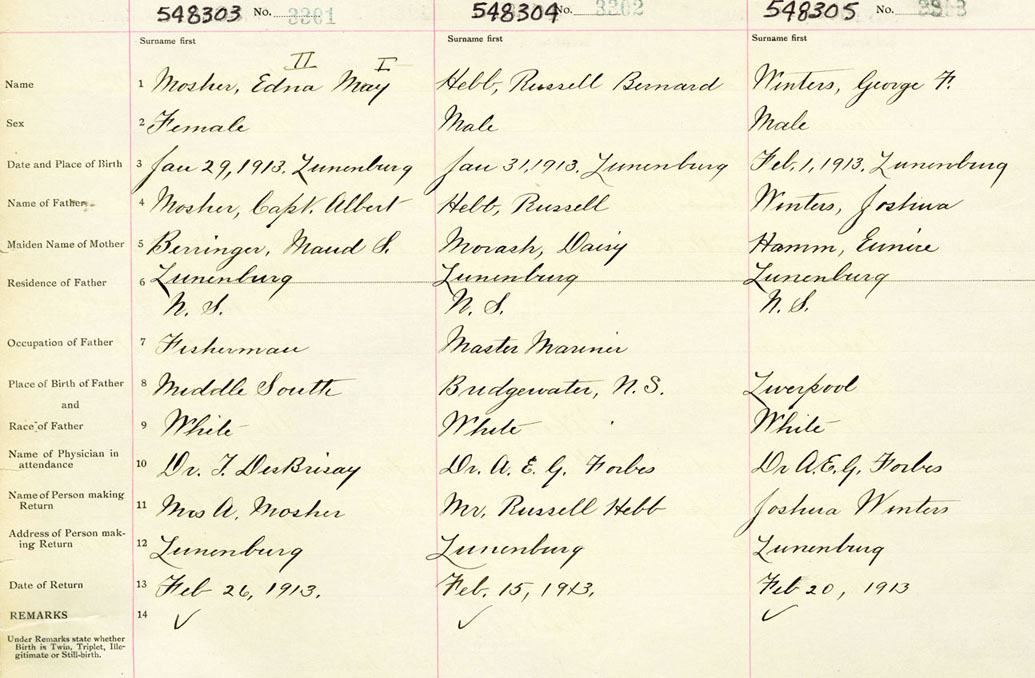 548303 No. 3301 548304 No. 3302 548305 No. 3303
Surname first Surname first Surname first
II I
Name 1 Mosher, Edna May Hebb, Russell Bernard Winters, George F.
Sex 2 Female Male Male
Date and Place of Birth 3 Jan 29, 1913. Lunenburg Jan 31, 1913. Lunenburg Feb. 1, 1913. Lunenburg
Name of Father 4 Mosher, Capt. Albert Hebb, Russell Winters, Joshua
Maiden Name of Mother 5 Berringer, Maud S. Morash, Daisy Hamm, Eunice
Residence of Father 6 Lunenburg Lunenburg Lunenburg
N. S. N. S. N. S.
Occupation of Father 7 Fisherman Master Mariner
Place of Birth of Father 8 Middle South Bridgewater, N.S. Liverpool
and
Race of Father 9 White White White
Name of Physician in
attendance 10 Dr. T. DesBrisay Dr. A. E. G. Forbes Dr A.E.G. Forbes
Name of Person making
Return 11 Mrs A. Mosher Mr. Russell Hebb Joshua Winters
Address of Person mak-
ing Return 12 Lunenburg Lunenburg Lunenburg
Date of Return 13 Feb 26, 1913. Feb. 15, 1913. Feb 20, 1913
REMARKS 14 ✓ ✓ ✓
Under Remarks state whether
Birth is Twin, Triplet, Ille-
gitimate or Still-birth.